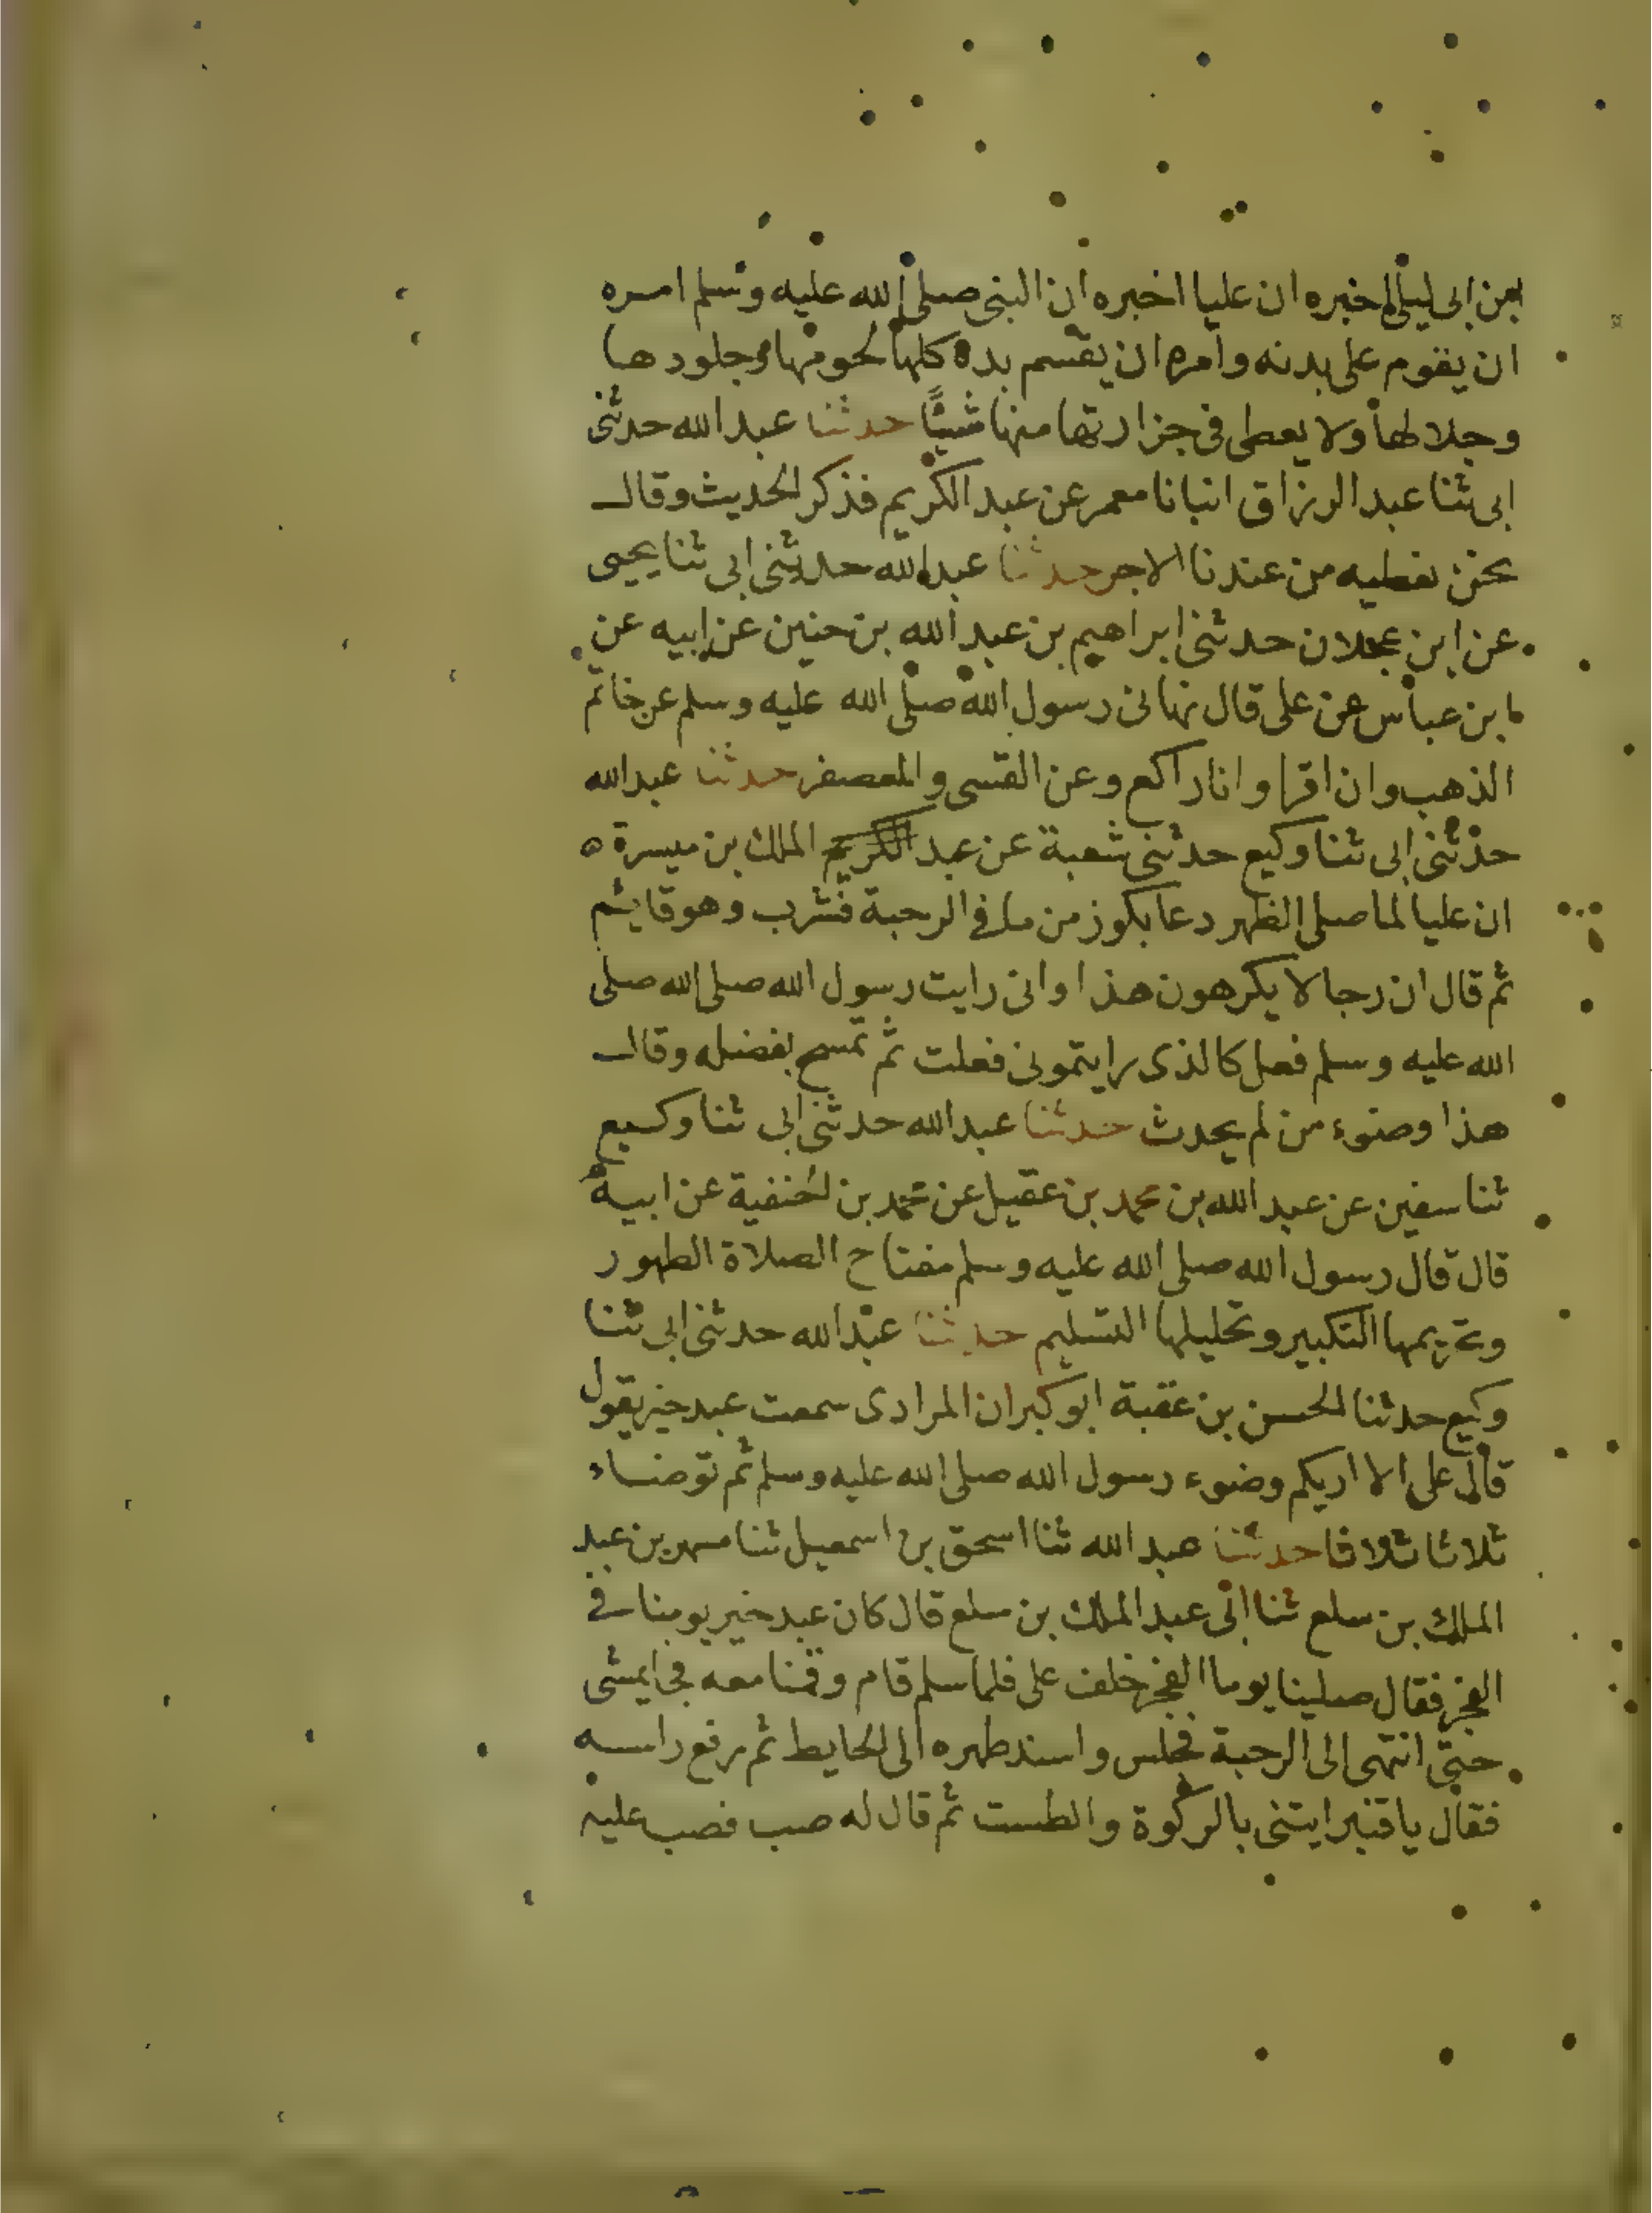 بن ابى ليلى اخبره ان عليا اخبره ان النبى صلى الله عليه وسلم امره
ان يقوم على بدنه وامره ان يقسم بدنه كلها لحومها وجلودها
وجلالها ولا يعطى فى جزارتها منها شيئًا حدثنا عبد الله حدثنى
ابى ثنا عبد الرزاق انبانا معمر عن عبد الكريم فذكر الحديث وقال
نحن نعطيه من عندنا الاجر حدثنا عبد الله حدثنى ابى ثنا يحيى
عن ابن عجلان حدثنى ابراهيم بن عبد الله بن حنين عن ابيه عن
ابن عباس عن على قال نهانى رسول الله صلى الله عليه وسلم عن خاتم
الذهب وان اقرا وانا راكع وعن القسى والمعصفر حدثنا عبد الله
حدثنى ابى ثنا وكيع حدثنى شعبة عن عبد الكريم الملك بن ميسرة ه
ان عليا لما صلى الظهر دعا بكوز من ما فى الرحبة فشرب وهو قايم
ثم قال ان رجالا يكرهون هذا وانى رايت رسول الله صلى الله صلى
الله عليه وسلم فعل كالذى رايتمونى فعلت ثم تمسح بفضله وقال
هذا وضوء من لم يحدث حدثنا عبد الله حدثنى ابى ثنا وكيع
ثنا سفين عن عبد الله بن محمد بن عقيل عن محمد بن الحنفية عن ابيه
قال قال رسول الله صلى الله عليه وسلم مفتاح الصلاة الطهور
وتحريمها التكبير وتحليلها التسليم حدثنا عبد الله حدثنى ابى ثنا
وكيع حدثنا الحسن بن عقبة ابو كبران المرادى سمعت عبد خير يقول
قال على الا اريكم وضوء رسول الله صلى الله عليه وسلم ثم توضاء
ثلاثا ثلاثا حدثنا عبد الله ثنا اسحق بن اسمعيل ثنا مسهر بن عبد
الملك بن سلع ثنا ابى عبد الملك بن سلع قال كان عبد خير يومنا فى
الفجر فقال صلينا يوما الفجر خلف على فلما سلم قام وقمنا معه فجا يمشى
حتى انتهى الى الرحبة فجلس واسند ظهره الى الحايط ثم رفع راسه
فقال يا قنبر ايتنى بالركوة والطست ثم قال له صب فصب عليه